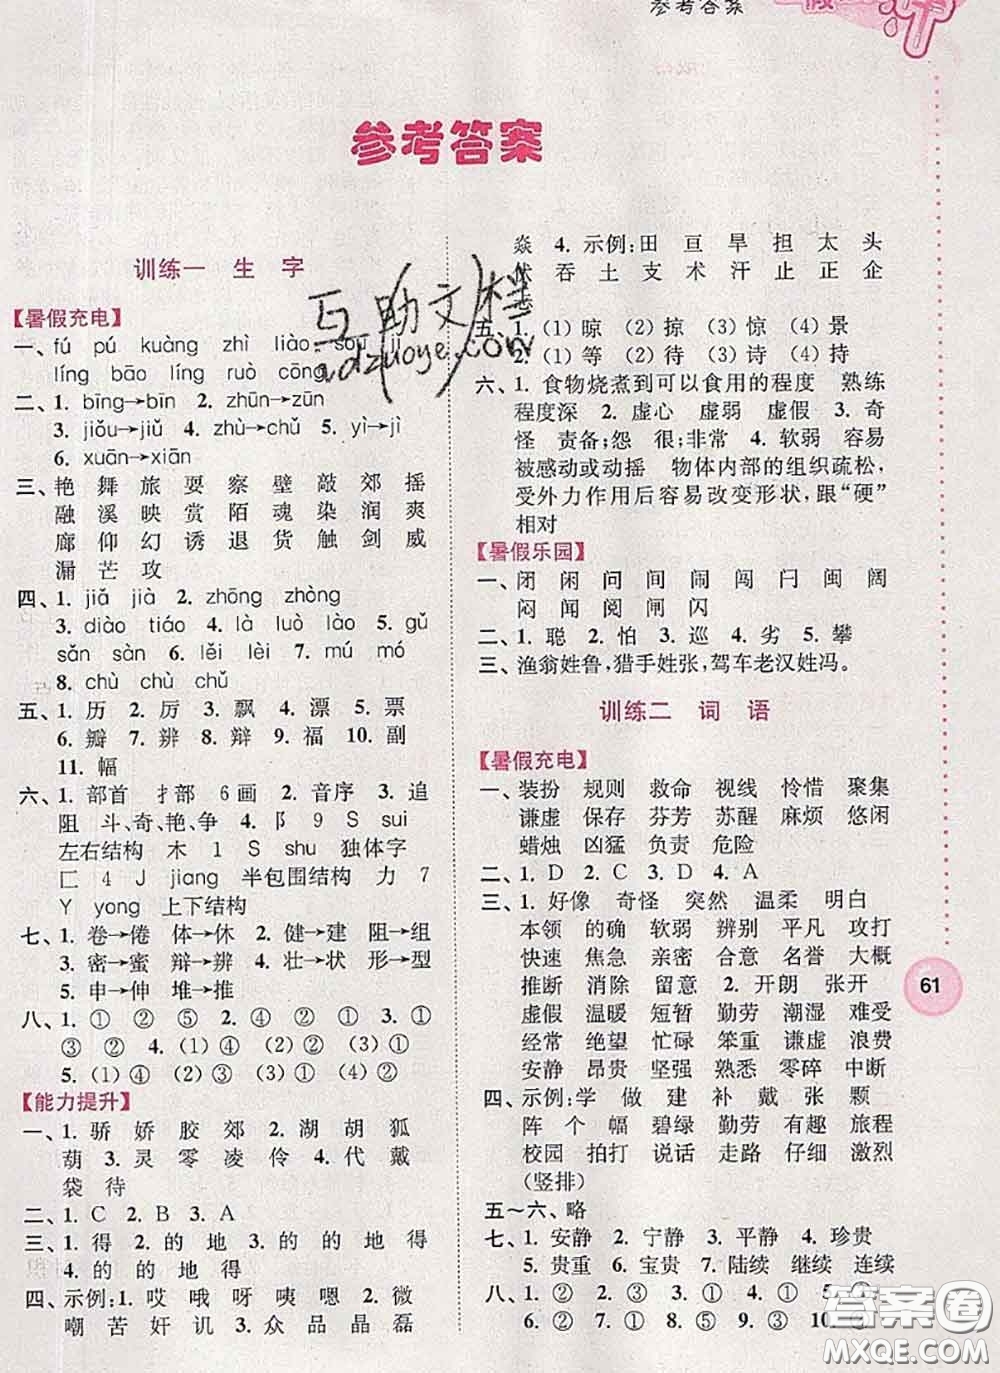 参考答案
参考答案
训练一 生 字
【暑假充电】
一、fú pú kuàng zhì liào sōu jì
líng bāo líng ruò cōng
二、1. bīng→bīn 2. zhūn→zūn
3. jiǒu→jiǔ 4. zhù→chǔ 5. yì→jì
6. xuān→xiān
三、艳 舞 旅 耍 察 壁 敲 郊 摇
融 溪 映 赏 陌 魂 染 润 爽
廊 仰 幻 诱 退 货 触 剑 威
漏 芒 攻
四、1. jiǎ jià 2. zhōng zhòng
3. diào tiáo 4. là luò lào 5. gǔ
sǎn sàn 6. lěi lèi 7. mú mó
8. chù chù chǔ
五、1. 历 2. 厉 3. 飘 4. 漂 5. 票
6. 瓣 7. 辨 8. 辩 9. 福 10. 副
11. 幅
六、1. 部首 扌部 6画 2. 音序 3. 追
阻 斗、奇、艳、争 4. 阝 9 S sui
左右结构 木 1 S shu 独体字
匚 4 J jiang 半包围结构 力 7
Y yong 上下结构
七、1. 卷→倦 体→休 2. 健→建 阻→组
3. 密→蜜 辩→辨 4. 壮→状 形→型
5. 申→伸 堆→推
八、1. ① ② ⑤ 2. ④ ② ① 3. ①
③ ② 4. (1)④ (2)① (3)①
5. (1)④ (2)① (3)③ (4)②
【能力提升】
一、1. 骄 娇 胶 郊 2. 湖 胡 狐
葫 3. 灵 零 凌 伶 4. 代 戴
袋 待
二、1. C 2. B 3. A
三、1. 得 2. 的 地 3. 的 的 地 得
4. 的 的 地 得
四、示例:1. 哎 哦 呀 咦 嗯 2. 微
嘲 苦 奸 讥 3. 众 品 晶 磊
焱 4. 示例:田 亘 旱 担 太 头
伏 吞 土 支 术 汗 止 正 企
志
五、1. (1)晾 (2)掠 (3)惊 (4)景
2. (1)等 (2)待 (3)诗 (4)持
六、1. 食物烧煮到可以食用的程度 熟练
程度深 2. 虚心 虚弱 虚假 3. 奇
怪 责备;怨 很;非常 4. 软弱 容易
被感动或动摇 物体内部的组织疏松，
受外力作用后容易改变形状，跟“硬”
相对
【暑假乐园】
一、闭 闲 问 间 闹 闯 闩 闽 阔
闷 闻 阅 闸 闪
二、1. 聪 2. 怕 3. 巡 4. 劣 5. 攀
三、渔翁姓鲁，猎手姓张，驾车老汉姓冯。
训练二 词 语
【暑假充电】
一、装扮 规则 救命 视线 怜惜 聚集
谦虚 保存 芬芳 苏醒 麻烦 悠闲
蜡烛 凶猛 负责 危险
二、1. D 2. C 3. D 4. A
三、1. 好像 奇怪 突然 温柔 明白
本领 的确 软弱 辨别 平凡 攻打
快速 焦急 亲密 合意 名誉 大概
推断 消除 留意 2. 开朗 张开
虚假 温暖 短暂 勤劳 潮湿 难受
经常 绝望 忙碌 笨重 谦虚 浪费
安静 昂贵 坚强 熟悉 零碎 中断
四、示例:学 做 建 补 戴 张 颗
阵 个 幅 碧绿 勤劳 有趣 旅程
校园 拍打 说话 走路 仔细 激烈
(竖排)
五～六、略
七、1. 安静 2. 宁静 3. 平静 4. 珍贵
5. 贵重 6. 宝贵 7. 陆续 继续 连续
八、1. ② 2. ③ 3. ① 4. ①
6. ② 7. ① 8. ⑤ 9. ③
61
互助文档
adzuoye.com
答案圈
MXQE.COM